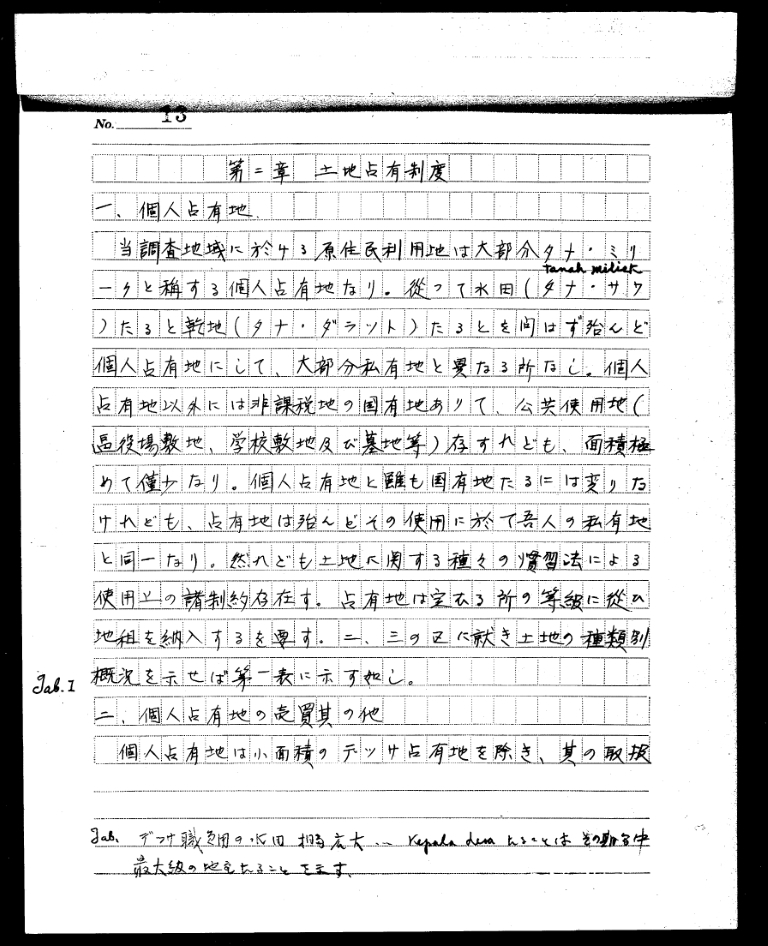 No. 13
第二章 土地占有制度
一、個人占有地
当調査地域に於ける原住民利用地は大部分タナ・ミリ
tanah miliek
ークと称する個人占有地なり。従つて水田(タナ・サワ
)たると乾地(タナ・ダラット)たるとを問はず殆んど
個人占有地にして、大部分私有地と異なる所なし。個人
占有地以外には非課税地の国有地ありて、公共使用地(
区役場敷地、学校敷地及び墓地等)存すれども、面積極
めて僅少なり。個人占有地と雖も国有地たるには変りな
けれども、占有地は殆んどその使用に於て吾人の私有地
と同一なり。然れども土地に関する種々の慣習法による
使用上の諸制約存在す。占有地は定むる所の等級に従ひ
地租を納入するを要す。二、三の区に就き土地の種類別
Tab. I 概況を示せば第一表に示す如し。
二、個人占有地の売買其の他
個人占有地は小面積のデッサ占有地を除き、其の取扱
Tab. デッサ職田の水田 相当広大 Kepala desa たることは その
最大級の地主たることを示す。